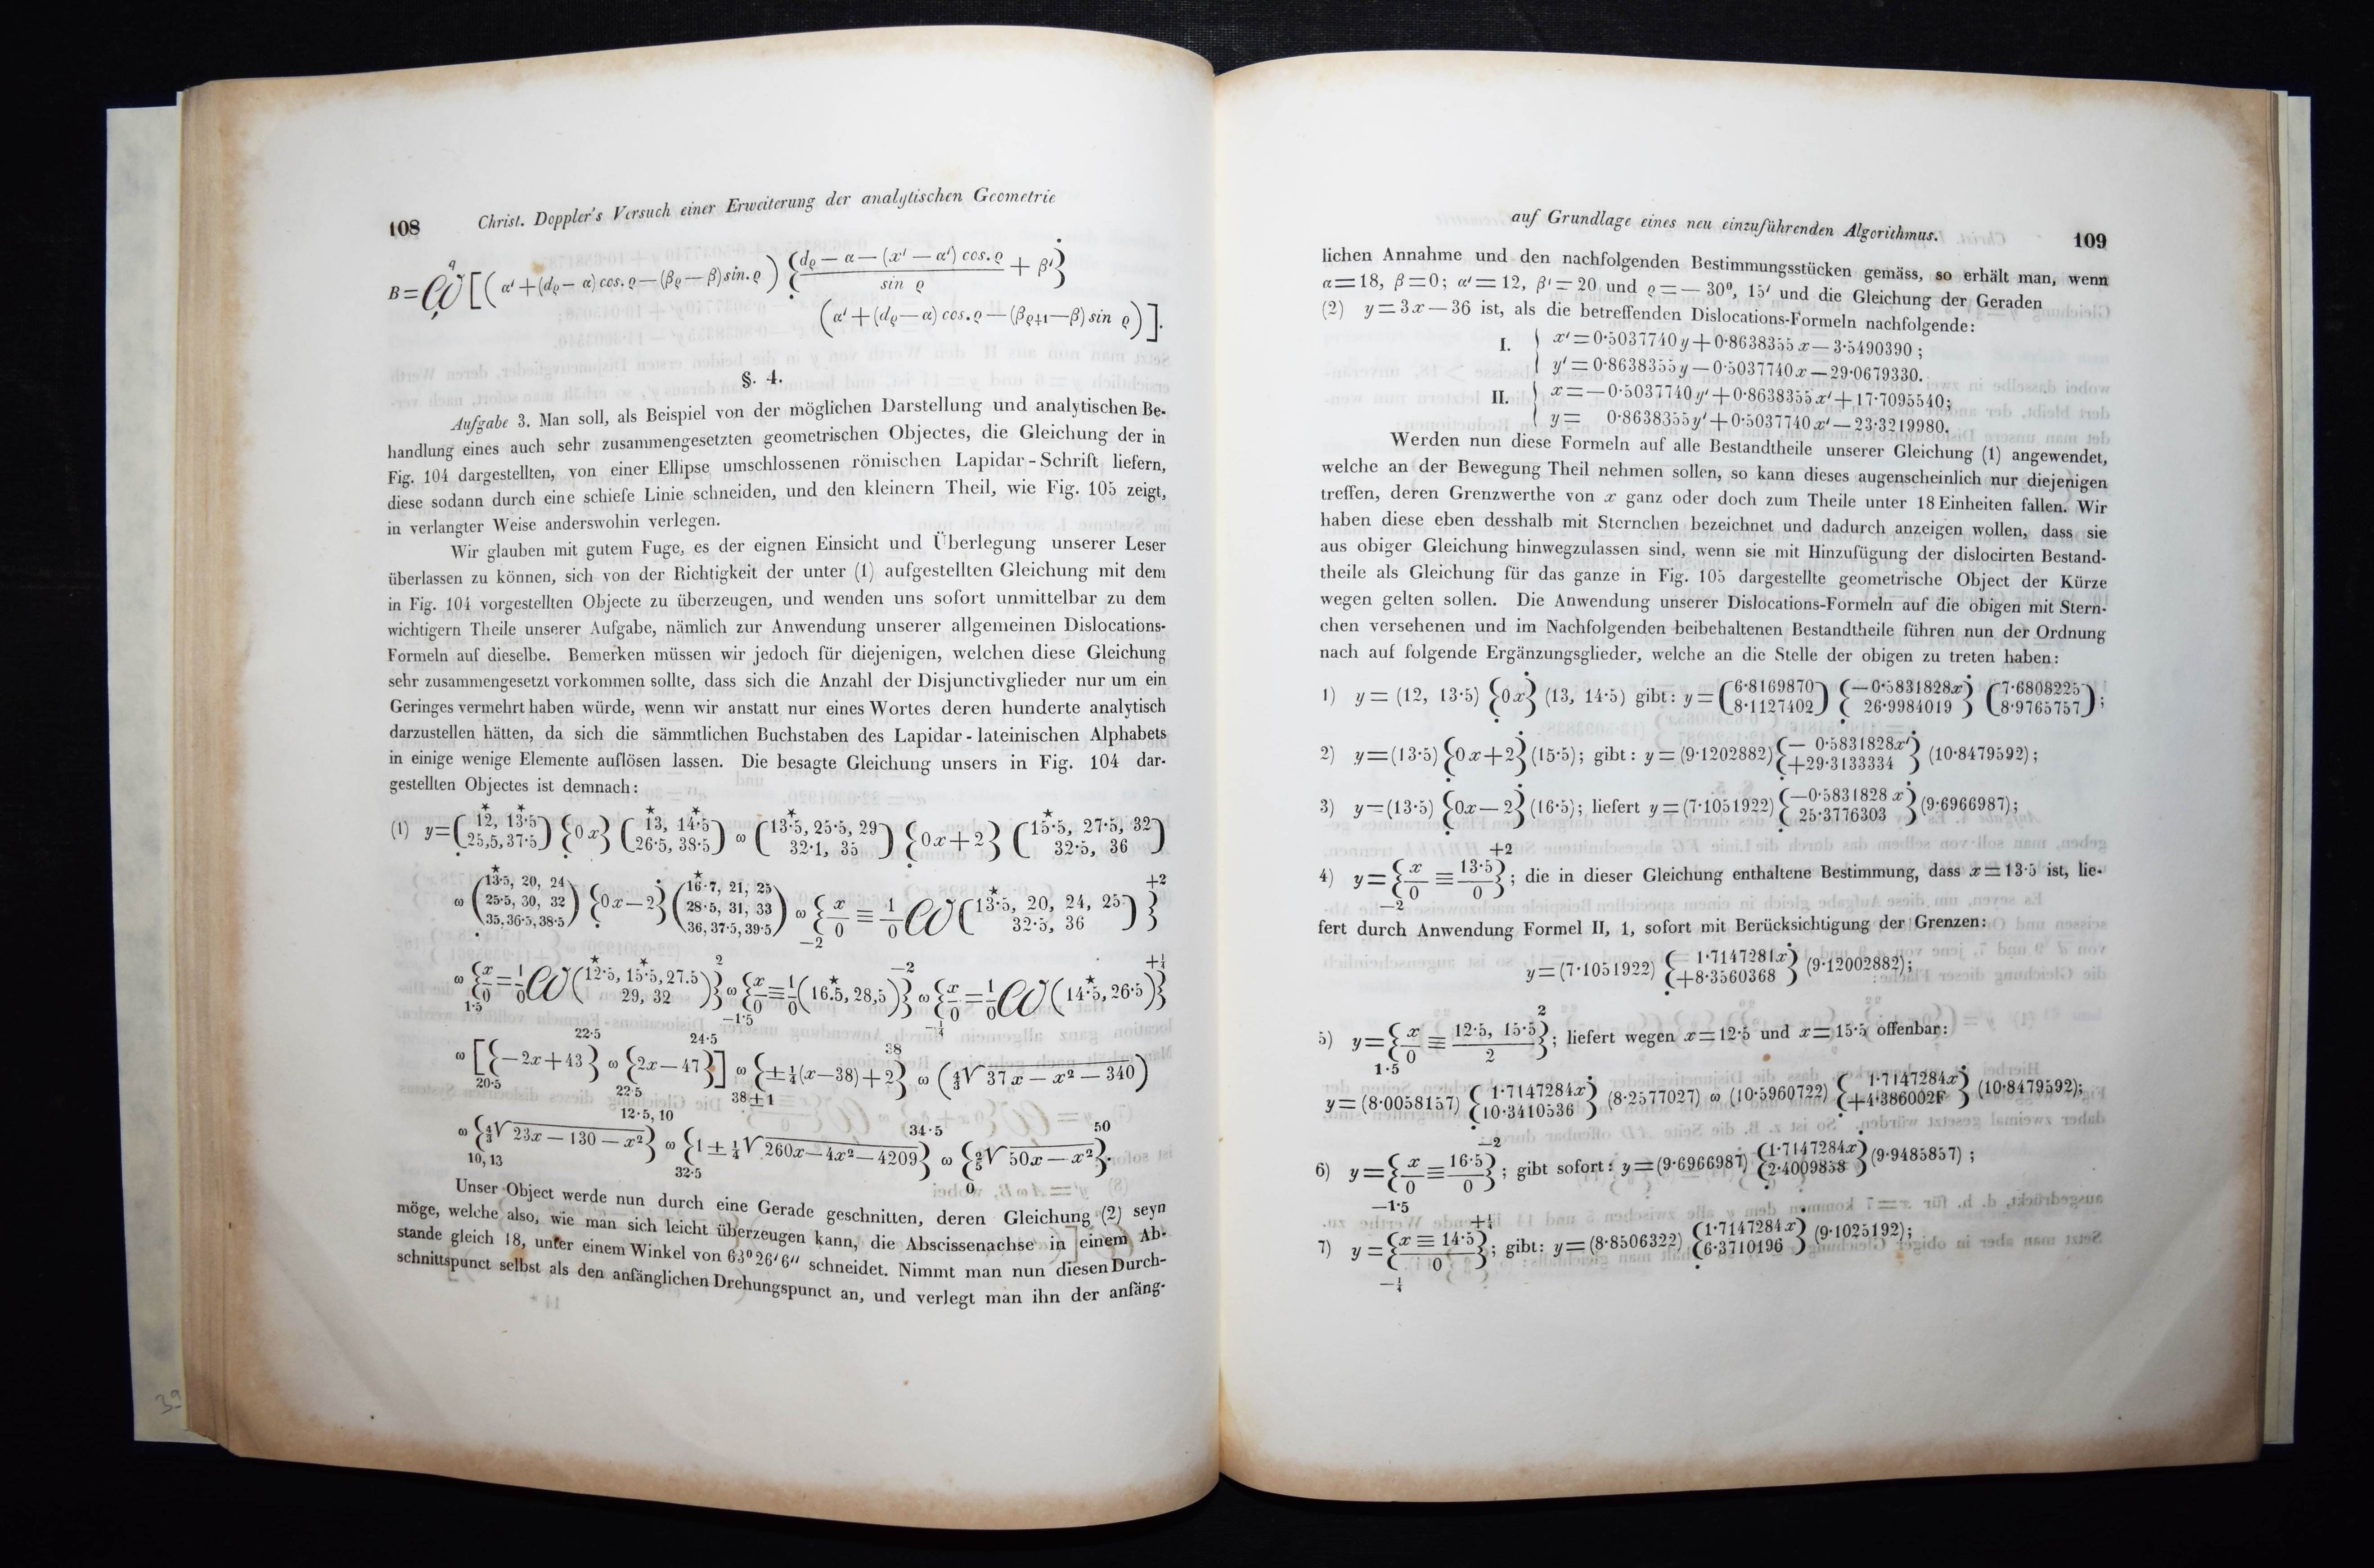 108 Christ. Doppler's Versuch einer Erweiterung der analytischen Geometrie
§. 4.
Aufgabe 3. Man soll, als Beispiel von der möglichen Darstellung und analytischen Be-
handlung eines auch sehr zusammengesetzten geometrischen Objectes, die Gleichung der in
Fig. 104 dargestellten, von einer Ellipse umschlossenen römischen Lapidar-Schrift liefern,
diese sodann durch eine schiefe Linie schneiden, und den kleinern Theil, wie Fig. 105 zeigt,
in verlangter Weise anderswohin verlegen.
Wir glauben mit gutem Fuge, es der eignen Einsicht und Überlegung unserer Leser
überlassen zu können, sich von der Richtigkeit der unter (1) aufgestellten Gleichung mit dem
in Fig. 104 vorgestellten Objecte zu überzeugen, und wenden uns sofort unmittelbar zu dem
wichtigern Theile unserer Aufgabe, nämlich zur Anwendung unserer allgemeinen Dislocations-
Formeln auf dieselbe. Bemerken müssen wir jedoch für diejenigen, welchen diese Gleichung
sehr zusammengesetzt vorkommen sollte, dass sich die Anzahl der Disjunctivglieder nur um ein
Geringes vermehrt haben würde, wenn wir anstatt nur eines Wortes deren hunderte analytisch
darzustellen hätten, da sich die sämmtlichen Buchstaben des Lapidar-lateinischen Alphabets
in einige wenige Elemente auflösen lassen. Die besagte Gleichung unsers in Fig. 104 dar-
gestellten Objectes ist demnach:
Unser Object werde nun durch eine Gerade geschnitten, deren Gleichung (2) seyn
möge, welche also, wie man sich leicht überzeugen kann, die Abscissenachse in einem Ab-
stande gleich 18, unter einem Winkel von 63° 26′ 6″ schneidet. Nimmt man nun diesen Durch-
schnittspunct selbst als den anfänglichen Drehungspunct an, und verlegt man ihn der anfäng-
auf Grundlage eines neu einzuführenden Algorithmus. 109
lichen Annahme und den nachfolgenden Bestimmungsstücken gemäss, so erhält man, wenn
α=18, β=0; α′=12, β′=20 und ϱ=—30⁰, 15′ und die Gleichung der Geraden
(2) y=3x—36 ist, als die betreffenden Dislocations-Formeln nachfolgende:
I. x′=0·5037740y+0·8638355x—3·5490390;
y′=0·8638355y—0·5037740x—29·0679330.
II. x=—0·5037740y′+0·8638355x′+17·7095540;
y= 0·8638355y′+0·5037740x′—23·3219980.
Werden nun diese Formeln auf alle Bestandtheile unserer Gleichung (1) angewendet,
welche an der Bewegung Theil nehmen sollen, so kann dieses augenscheinlich nur diejenigen
treffen, deren Grenzwerthe von x ganz oder doch zum Theile unter 18 Einheiten fallen. Wir
haben diese eben desshalb mit Sternchen bezeichnet und dadurch anzeigen wollen, dass sie
aus obiger Gleichung hinwegzulassen sind, wenn sie mit Hinzufügung der dislocirten Bestand-
theile als Gleichung für das ganze in Fig. 105 dargestellte geometrische Object der Kürze
wegen gelten sollen. Die Anwendung unserer Dislocations-Formeln auf die obigen mit Stern-
chen versehenen und im Nachfolgenden beibehaltenen Bestandtheile führen nun der Ordnung
nach auf folgende Ergänzungsglieder, welche an die Stelle der obigen zu treten haben:
1) y = (12, 13·5) {0x} (13, 14·5) gibt: y = (6·8169870 8·1127402) {—0·5831828x 26·9984019} (7·6808225 8·9765757);
2) y=(13·5) {0x+2} (15·5); gibt: y = (9·1202882) {—0·5831828x′ +29·3133334} (10·8479592);
3) y=(13·5) {0x—2} (16·5); liefert y=(7·1051922) {—0·5831828x 25·3776303} (9·6966987);
4) y={x/0 ≡ 13·5/0}; die in dieser Gleichung enthaltene Bestimmung, dass x=13·5 ist, lie-
fert durch Anwendung Formel II, 1, sofort mit Berücksichtigung der Grenzen:
y=(7·1051922) {1·7147281x +8·3560368} (9·12002882);
5) y={x/0 ≡ 12·5, 15·5/2}; liefert wegen x=12·5 und x=15·5 offenbar:
y=(8·0058157) {1·7147284x 10·3410536} (8·2577027) ω (10·5960722) {1·7147284x +4·386002F} (10·8479592);
6) y={x/0 ≡ 16·5/0}; gibt sofort: y=(9·6966987) {1·7147284x 2·4009858} (9·9485857);
7) y={x ≡ 14·5/0}; gibt: y=(8·8506322) {1·7147284x 6·3710196} (9·1025192);